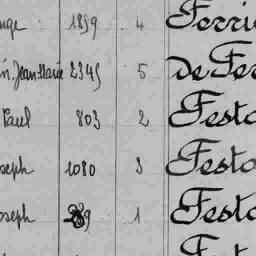 1859 4 Ferri
Jean Marie 2345 5 de Fer
Paul 803 2 Festo
seph 1080 3 Festo
oseph 1 Festo